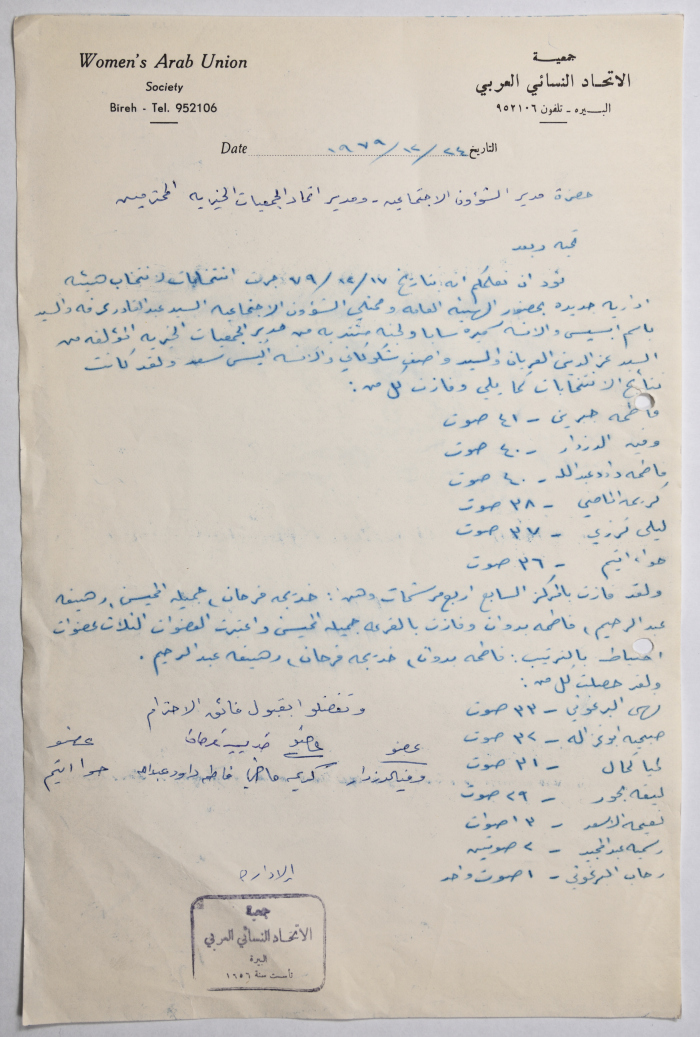 Women's Arab Union
Society
Bireh - Tel. 952106
جمعية
الاتحاد النسائي العربي
البيره - تلفون ٩٥٢١٠٦
Date ١٩٧٩/١٢/٢٤ التاريخ
حضرة مدير الشؤون الاجتماعيه - ومدير اتحاد الجمعيات الخيريه المحترمين
تحيه وبعد
نود ان نعلمكم انه بتاريخ ٧٩/١٢/١٧ جرت انتخابات لانتخاب هيئه
اداريه جديده بحضور الهيئه العامه وممثلي الشؤون الاجتماعيه السيد عبد القادر عرفه والسيد
باسم والانسه سميرة سابا ولجنه منتدبه من مدير الجمعيات الخيريه المؤلفه من
السيد عز الدين العريان والسيد واصف شكوكاني والانسه اليس سعد ولقد كانت
نتائج الانتخابات كما يلي وفازت كل من :
فاطمه جبرين - ٤١ صوت
وفيه الدزدار - ٤٠ صوت
فاطمه داود عبدالله - ٤٠ صوت
كريمه الماضي - ٣٨ صوت
ليلى قرزي - ٣٧ صوت
حواء اتيم - ٣٦ صوت
ولقد فازت بالمركز السابع اربع مرشحات وهن : خديجه فرحان، جميله الخميس، رهيفه
عبد الرحيم، فاطمه بدوان وفازت بالقرعه جميله الخميس واعتبرت العضوات الثلاث عضوات
احتياط بالترتيب : فاطمه بدوان، خديجه فرحان، رهيفه عبد الرحيم .
ولقد حصلت كل من :
نهى البرغوثي - ٣٣ صوت
صبحيه ابو غزاله - ٣٢ صوت
- ٣١ صوت
لطيفه - ٢٩ صوت
نعيمه الاسعد - ٣ اصوات
رسميه عبد المجيد - ٢ صوتين
رحاب البرغوثي - ١ صوت واحد
وتفضلوا بقبول فائق الاحترام
عضو عضو
وفيه الدزدار كريمه ماضي فاطمه داود عبدالله حوا اتيم
الاداره
جمعية
الاتحاد النسائي العربي
البيرة
تأسست سنة ١٩٥٦